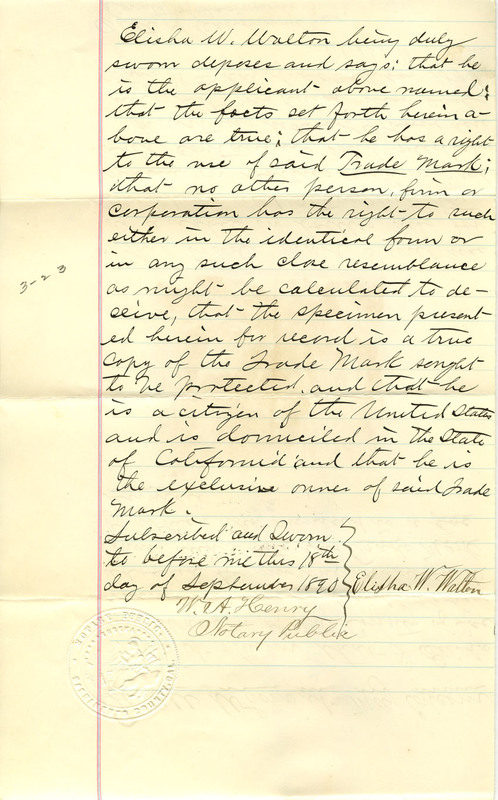 Elisha W. Walton being duly
sworn deposes and says: that he
is the applicant above named:
that the facts set forth herein a-
bove are true; that he has a right
to the use of said Trade Mark;
that no other person, firm or
corporation has the right to such
either in the identical form or
in any such close resemblance
as might be calculated to de-
ceive, that the specimen present-
ed herein for record is a true
copy of the Trade Mark sought
to be protected, and that he
is a citizen of the United States
and is domiciled in the State
of California and that he is
the exclusive owner of said Trade
Mark.
Subscribed and Sworn
to before me this 18th
day of September 1890
Elisha W. Walton
W. A. Henry
Notary Public
3-23